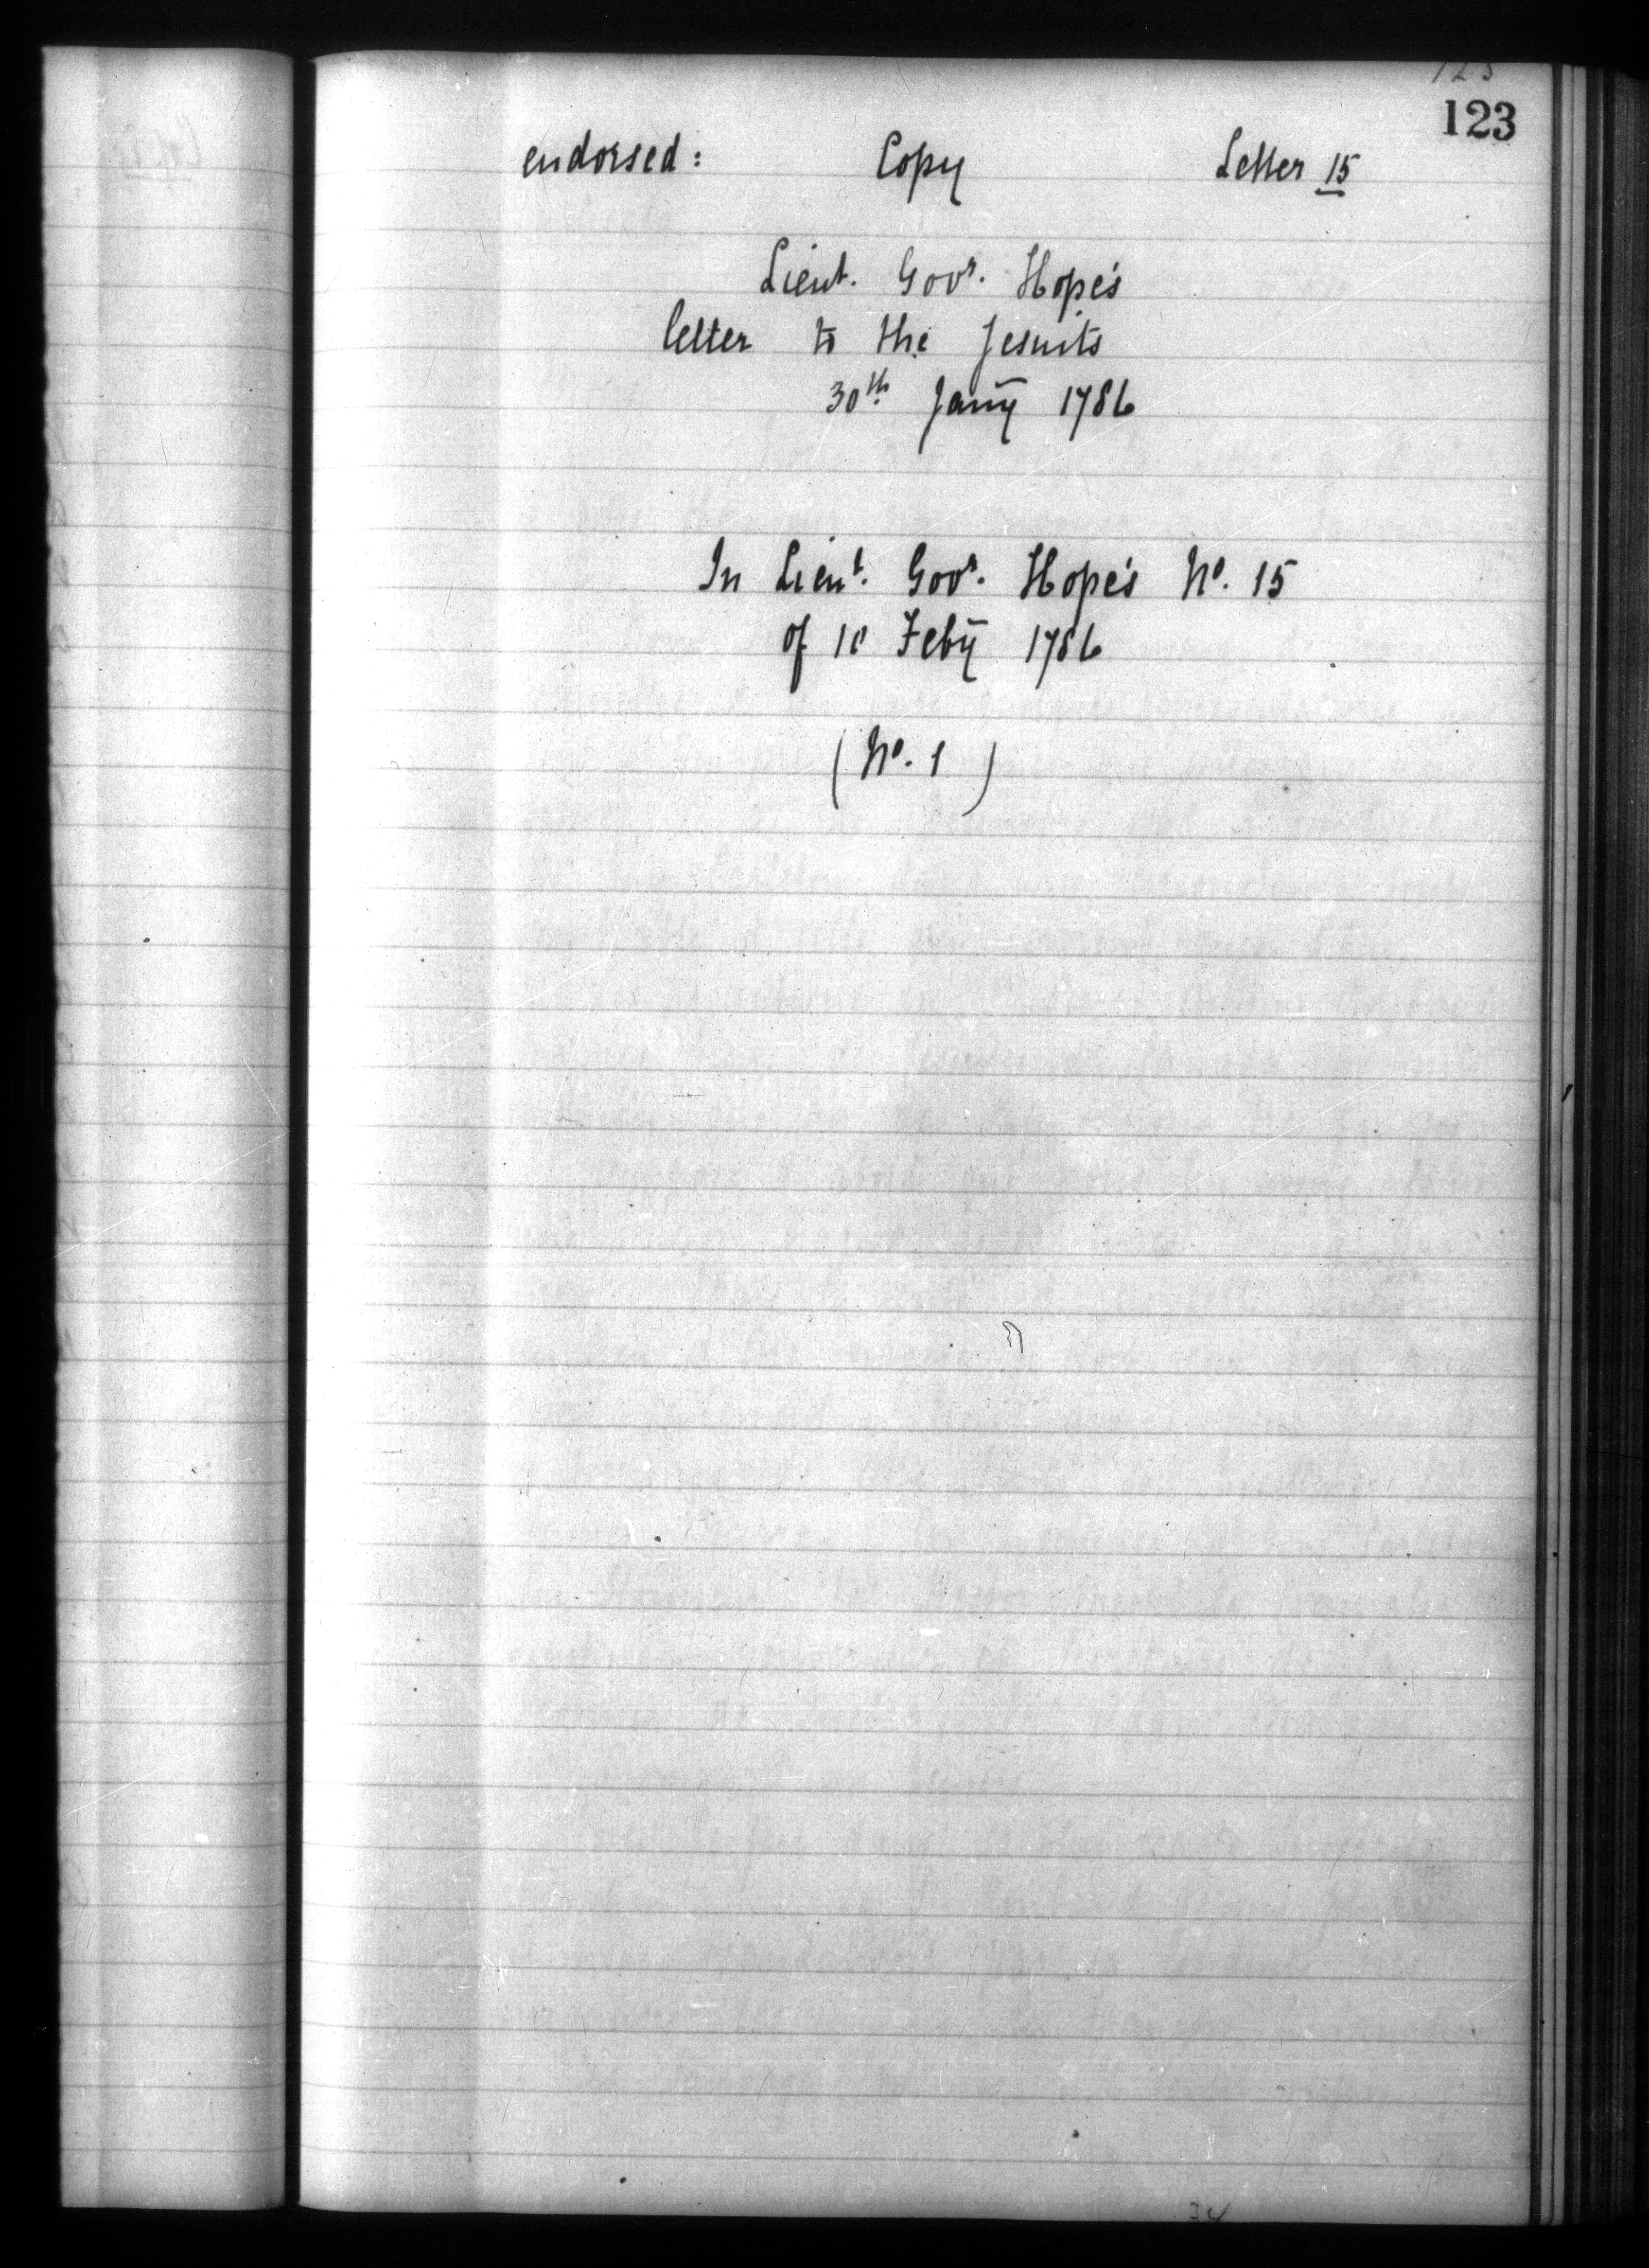 123
123
endorsed: Copy Letter 15
Lieut. Govr. Hope's
letter to the Jesuits
30th. Jany 1786
In Lieut. Govr. Hope's No. 15
of 10 Feby 1786
(No. 1)